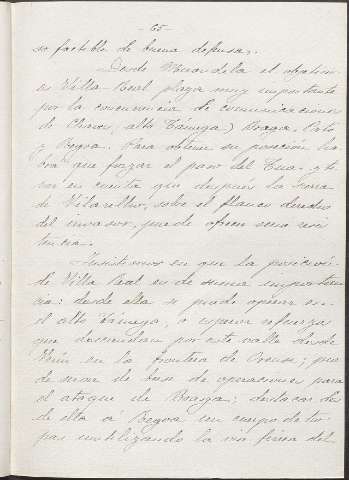 -65-
so factible de buena defensa.
Desde Mirandela el objetivo
es Villa-Real plaza muy importante
por la concurrencia de comunicaciones
de Chaves, alto Támega) Braga, Oporto
y Regoa. Para obtener su posesión ha-
brá que forzar el paso del Tua, y te-
ner en cuenta que después la sierra
de Villarelho, sobre el flanco derecho
del invasor, puede ofrecer seria resis-
tencia.
Insistimos en que la posición
de Villa Real es de suma importan-
cia: desde ella se puede operar en
el alto Támega, o esperar refuerzos
que desciendan por este valle desde
Verín en la frontera de Orense; pue-
de servir de base de operaciones para
el ataque de Braga; destacar des-
de ella á Regoa un cuerpo de tro-
pas inutilizando la vía férrea del